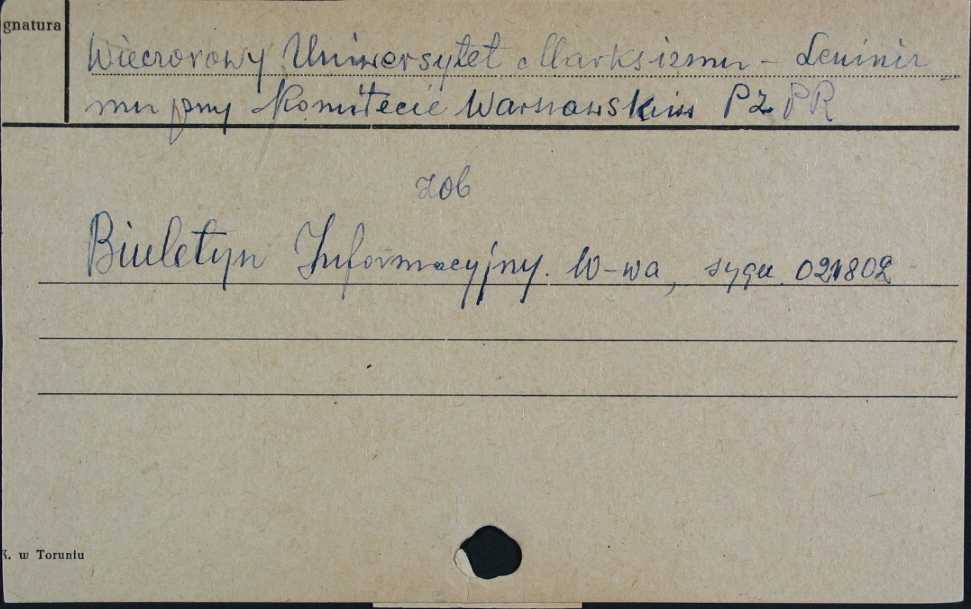 gnatura
Wieczorowy Uniwersytet Marksizmu - Leniniz
mu przy Komitecie Warszawskim PZPR
zob
Biuletyn Informacyjny. W-wa, sygn. 021802
K. w Toruniu